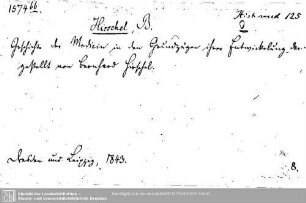 1574 66
Hist. med 125
Hirschel, B.
Geschichte der Medicin in den Grundzügen ihrer Entwickelung dar-
gestellt von Bernhard Hirschel.
Dresden und Leipzig, 1843.
8.
Sächsische Landesbibliothek -
Staats- und Universitätsbibliothek Dresden